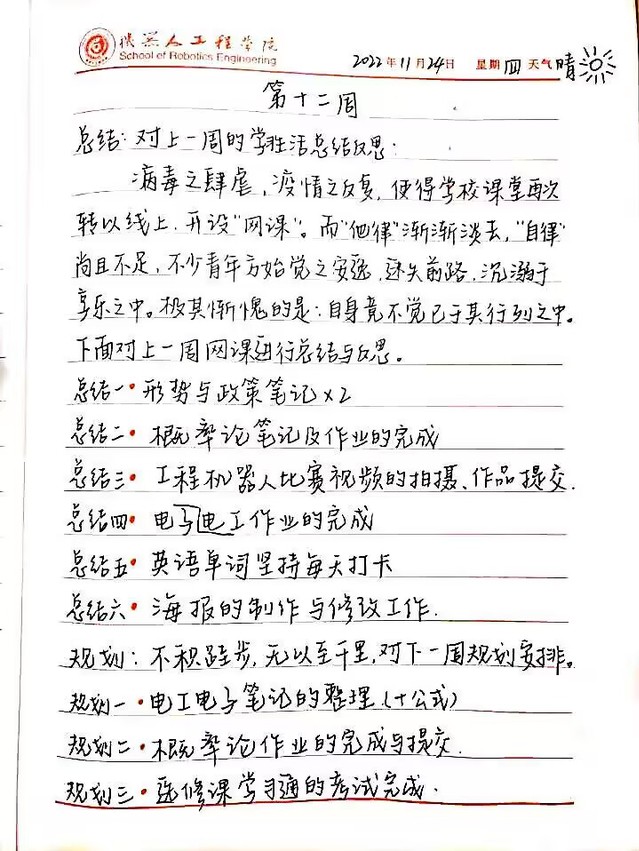 机器人工程学院
School of Robotics Engineering
2022年11月24日 星期四 天气晴
第十二周
总结:对上一周的学习生活总结反思:
病毒之肆虐,疫情之反复,使得学校课堂再次
转以线上,开设"网课"。而"他律"渐渐淡去,"自律"
尚且不足,不少青年方始觉之安逸,迷失前路,沉溺于
享乐之中。极其惭愧的是:自身竟不觉已于其行列之中。
下面对上一周网课进行总结与反思。
总结一·形势与政策笔记×2
总结二·概率论笔记及作业的完成
总结三·工程机器人比赛视频的拍摄、作品提交.
总结四·电子电工作业的完成
总结五·英语单词坚持每天打卡
总结六·海报的制作与修改工作.
规划:不积跬步,无以至千里,对下一周规划安排。
规划一·电工电子笔记的整理(+公式)
规划二·概率论作业的完成与提交.
规划三·选修课学习通的考试完成.